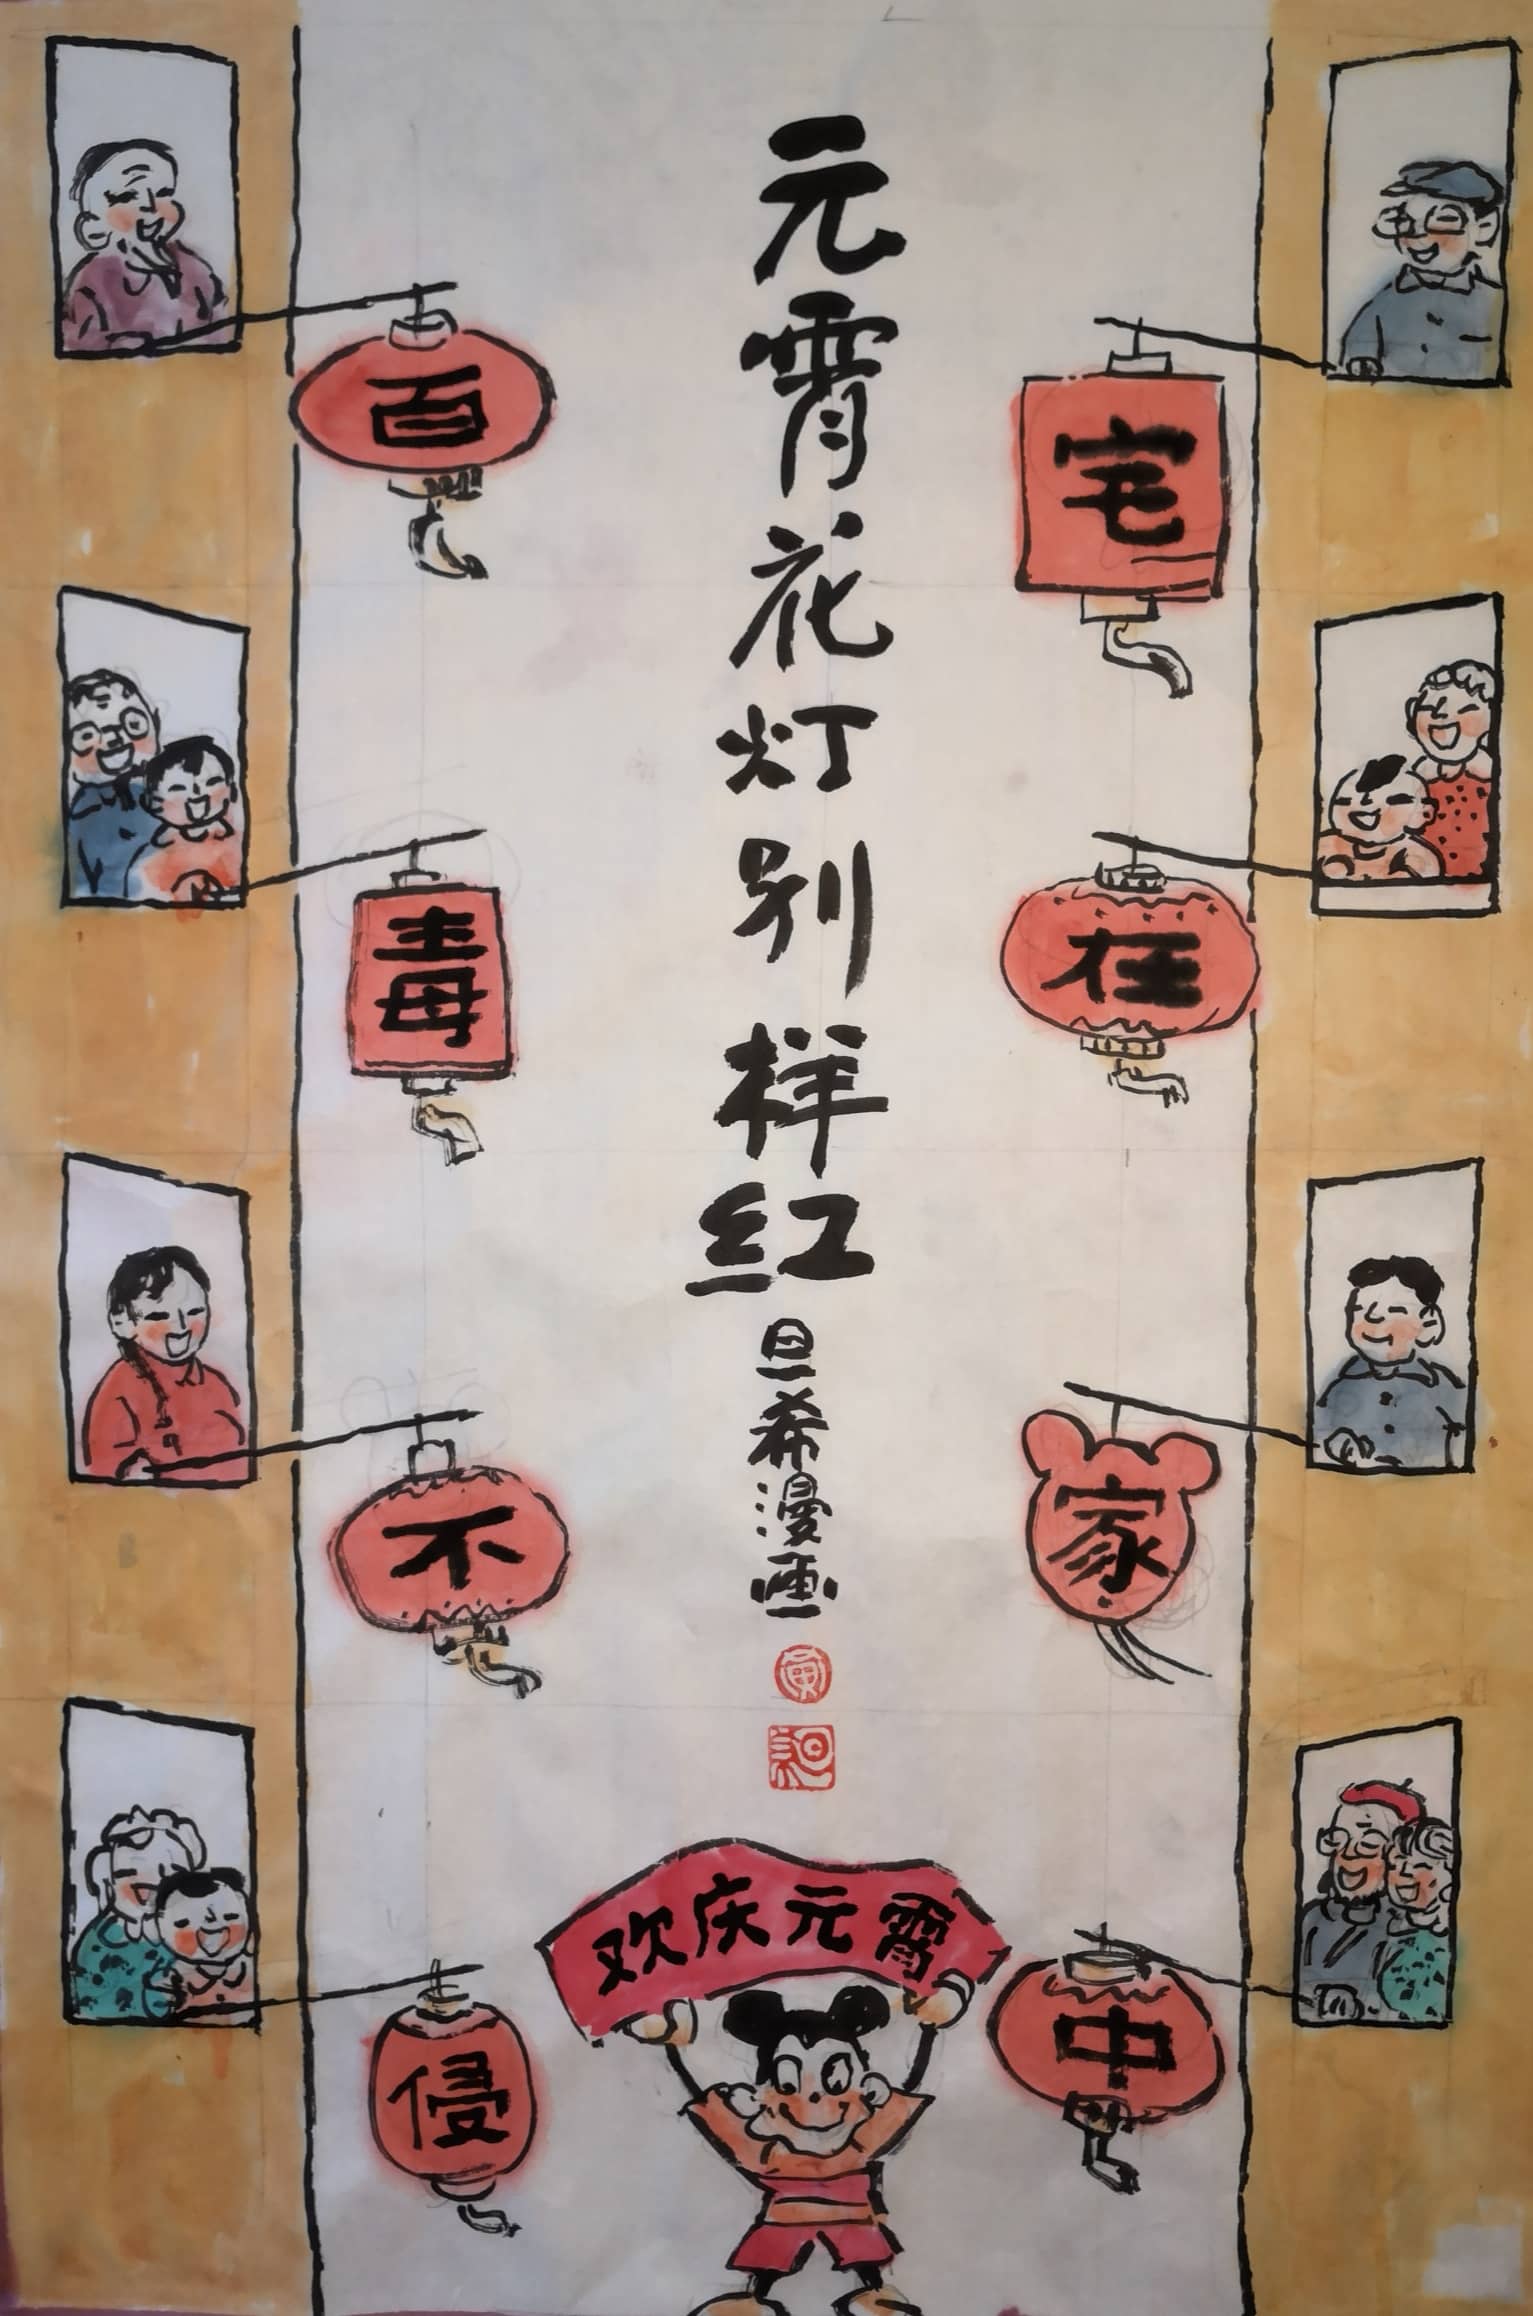 元霄花灯别样红
旦希漫画
宅在家中
百毒不侵
欢庆元霄